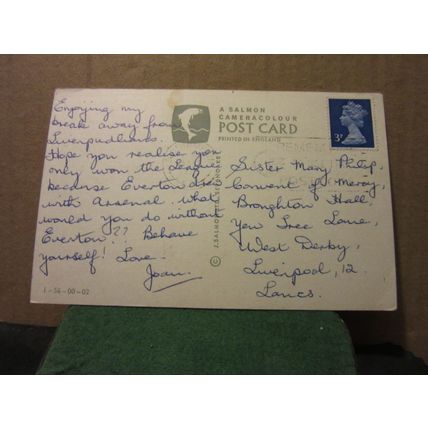 Enjoying my
break away from
Liverpudlians.
Hope you realise you
only won the League
because Everton drew
with Arsenal. What
would you do without
Everton?? Behave
yourself! Love.
Joan.
1-56-00-02
A SALMON
CAMERACOLOUR
POST CARD
PRINTED IN ENGLAND
J. SALMON LTD., SEVENOAKS
©
3P
Sister Mary Philip,
Convent of Mercy,
Broughton Hall,
Yew Tree Lane,
West Derby,
Liverpool, 12.
Lancs.